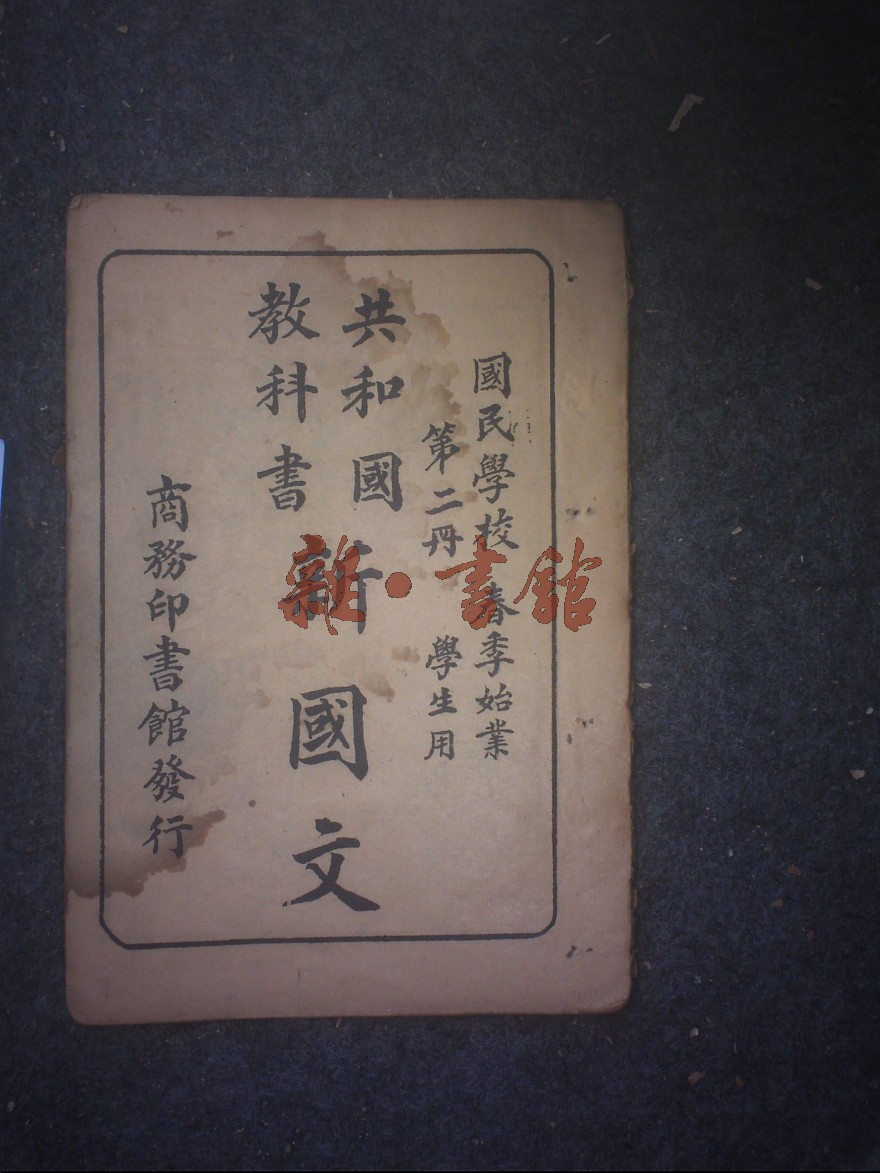 國民學校 春季始業
第二冊 學生用
共和國
教科書
新國文
商務印書館發行
雜·書館